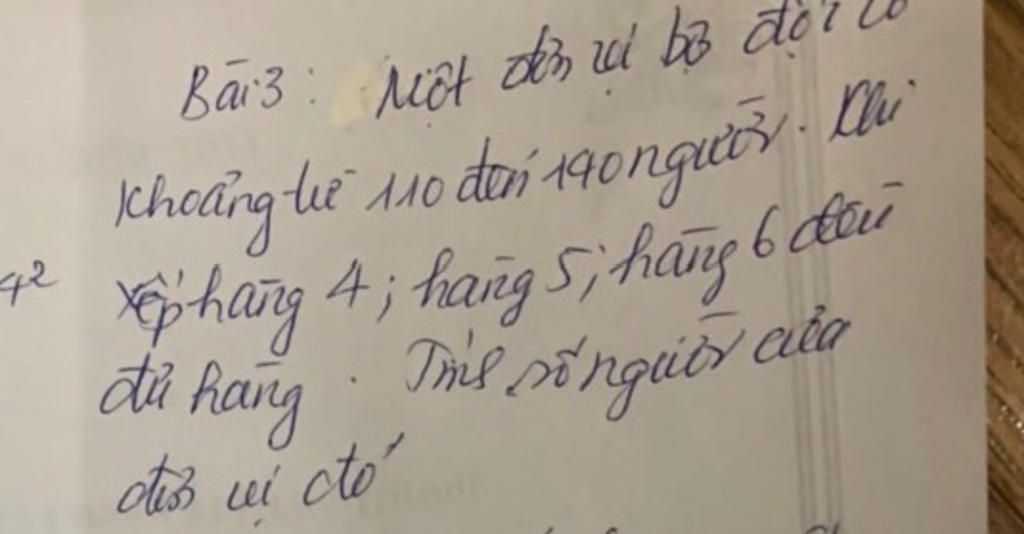 Bài 3: Một đơn vị bộ đội có
khoảng từ 110 đến 140 người. Khi
4² xếp hàng 4; hàng 5; hàng 6 đều
đủ hàng. Tính số người của
đơn vị đó